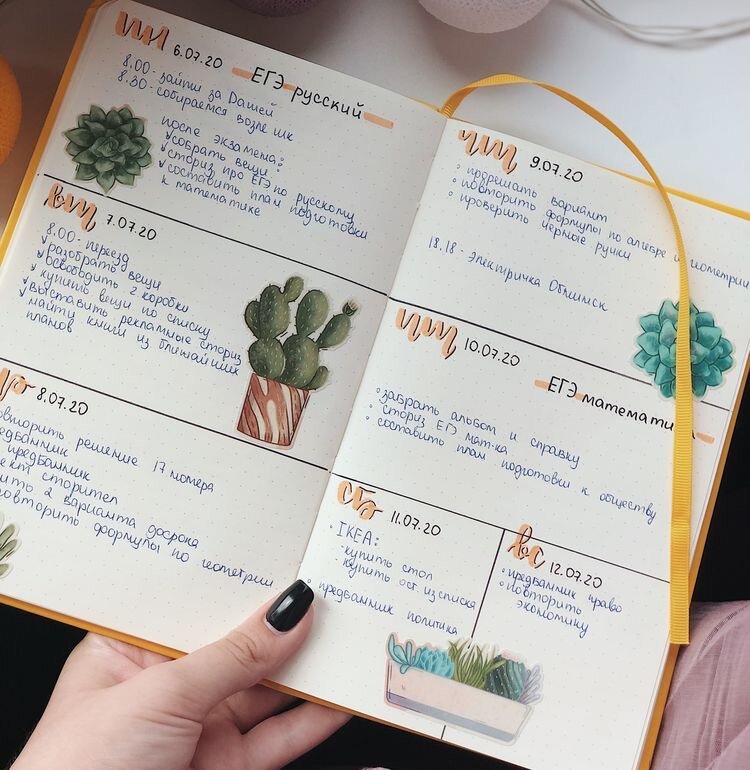 пн 6.07.20
ЕГЭ русский
8.00 - зайти за Дашей
8.30 - собираемся возле шк
после экзамена:
✓ собрать вещи
✓ сториз про ЕГЭ по русскому
✓ составить план подготовки
к математике
вт 7.07.20
8.00 - переезд
✓ разобрать вещи
✓ освободить 2 коробки
✓ купить вещи по списку
✓ выставить рекламные сториз
найти книги из ближайших
планов
ср 8.07.20
повторить решение 17 номера
предбанник
предбанник
сторител
2 варианта досрока
повторить формулы по геометрии
чт 9.07.20
◦ прорешать вариант
◦ повторить формулы по алгебре и геометрии
◦ проверить черные ручки
18.18 - Электричка Обнинск
пт 10.07.20
ЕГЭ математика
◦ забрать альбом и справку
◦ сториз ЕГЭ мат-ка
◦ составить план подготовки к обществу
сб 11.07.20
◦ IKEA:
- купить стол
- купить ост. из списка
◦ предбанник политика
вс 12.07.20
◦ предбанник право
◦ повторить
экономику